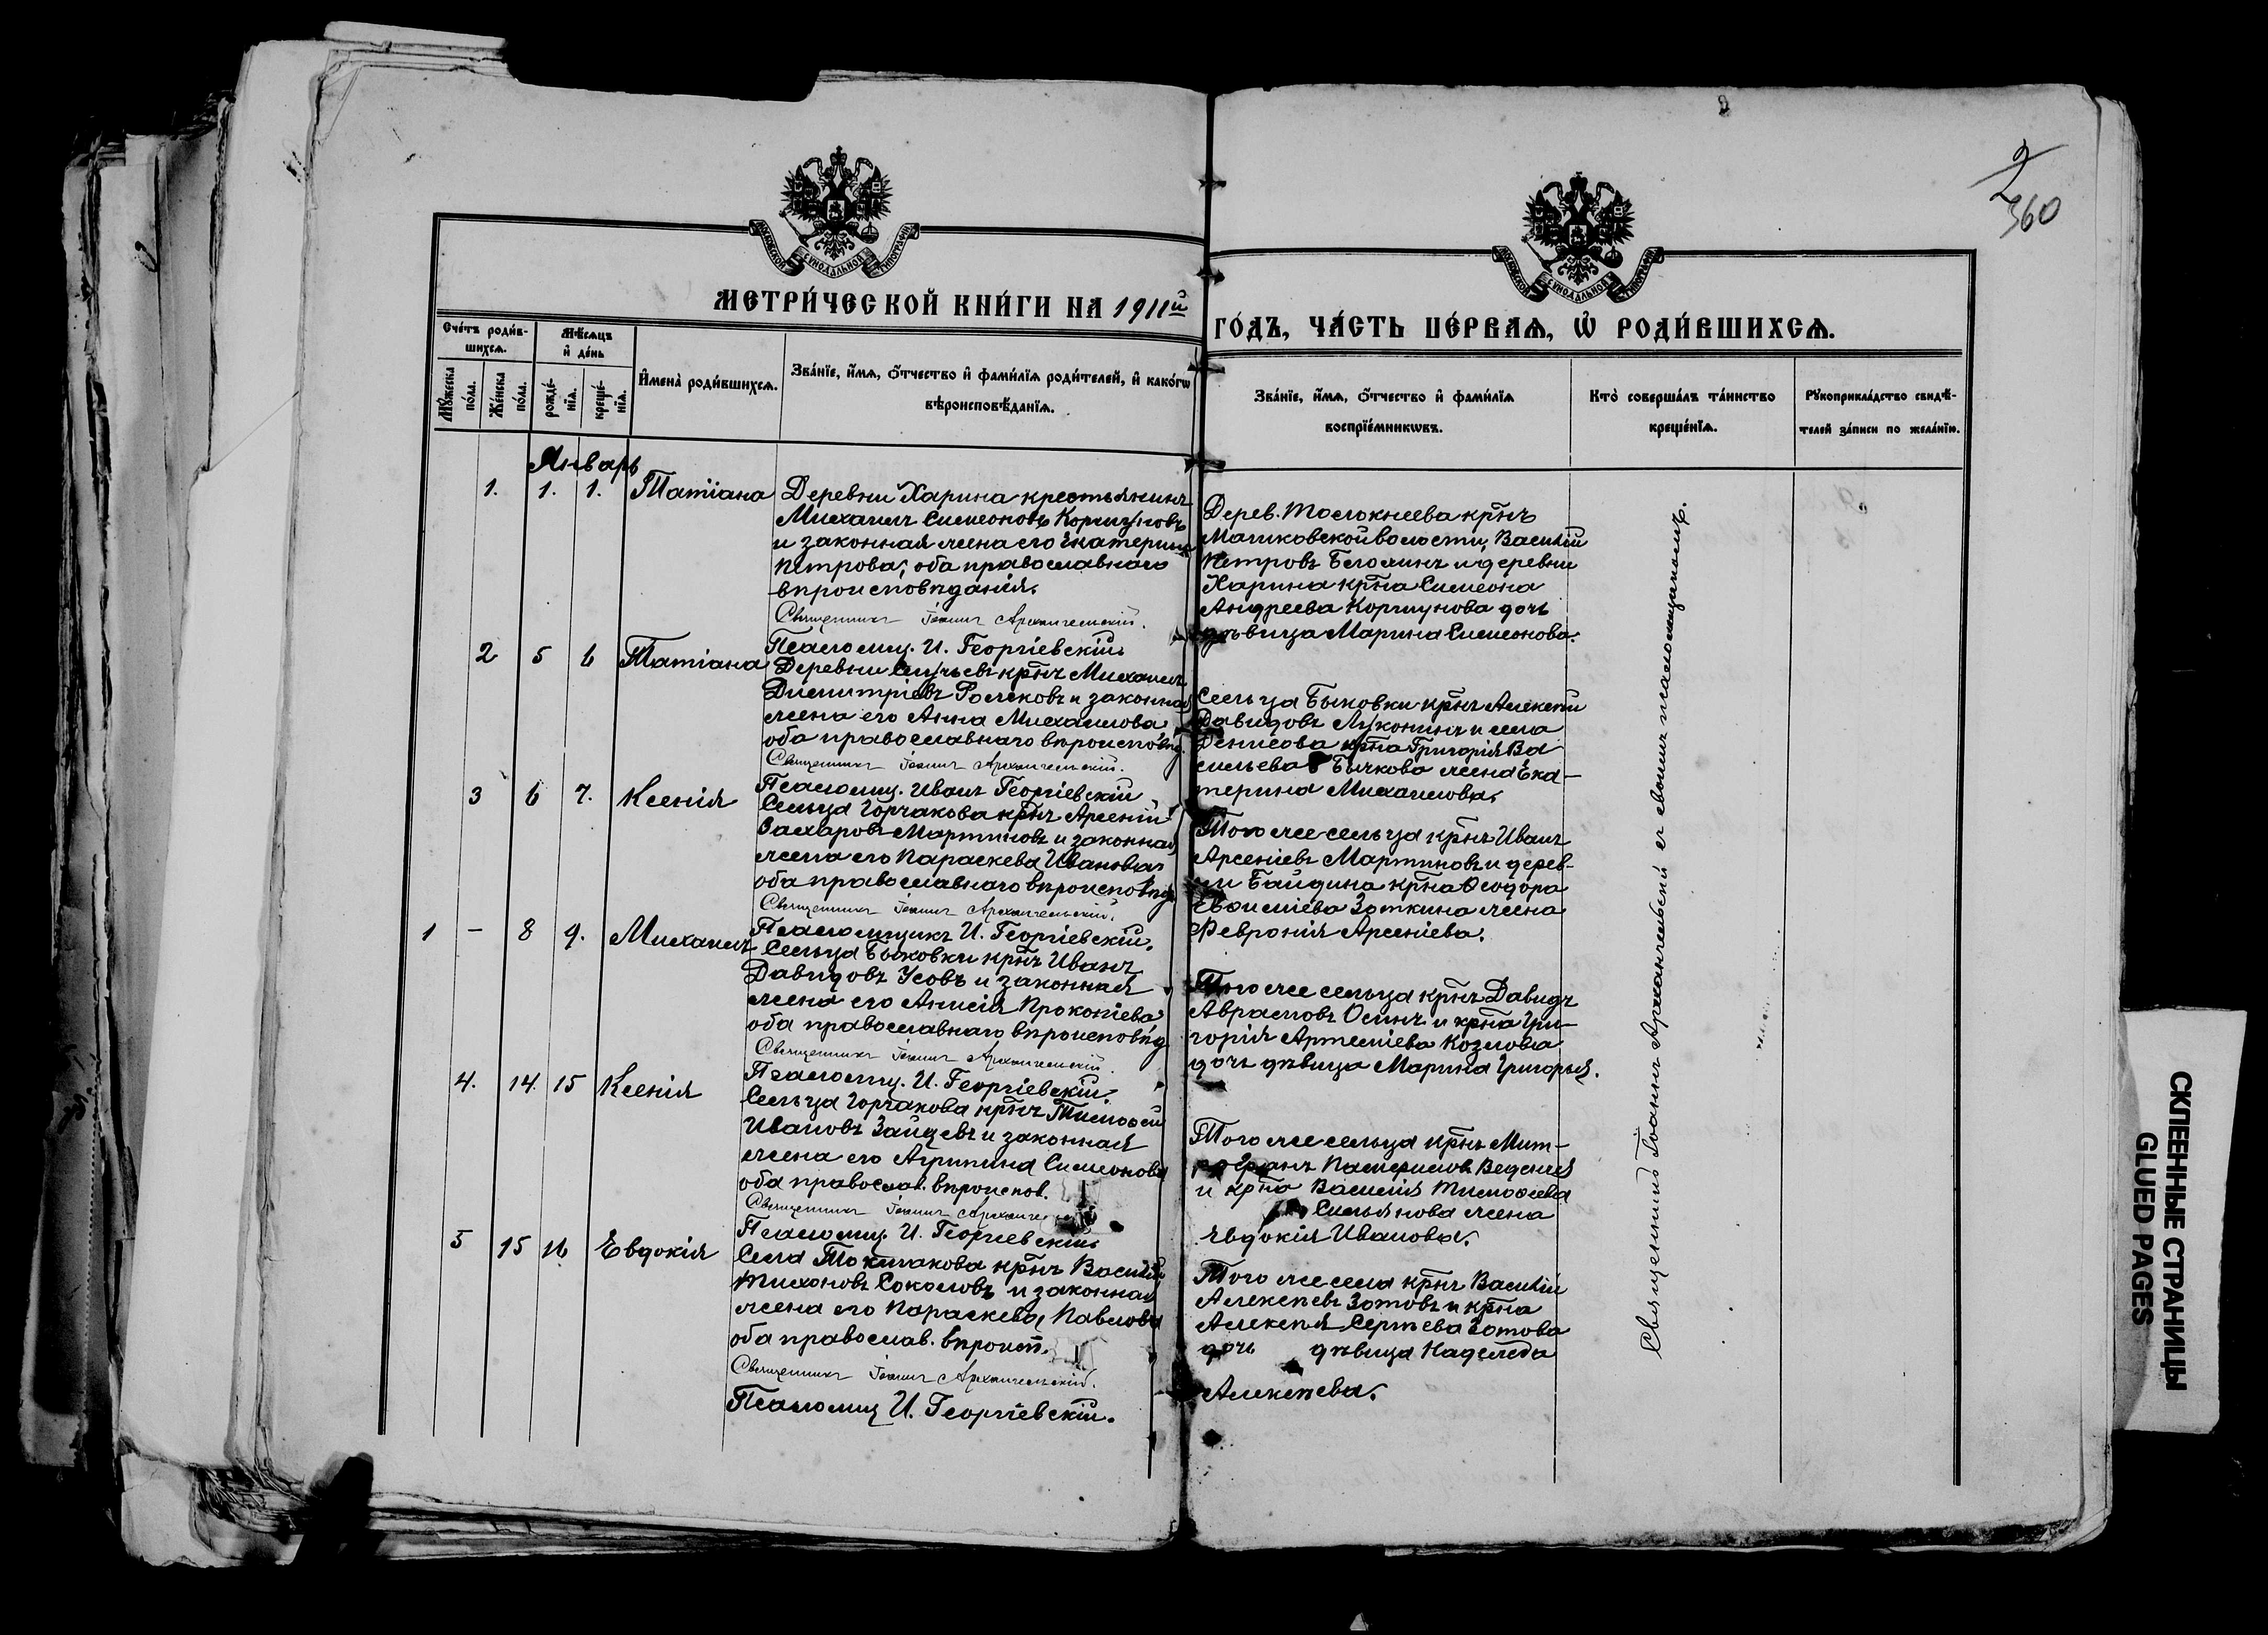 2
360
МОСКОВСКОЙ СѴНОДАЛЬНОЙ ТИПОГРАФІИ
МОСКОВСКОЙ СѴНОДАЛЬНОЙ ТИПОГРАФІИ
МЕТРИ́ЧЕСКОЙ КНИ́ГИ НА 1911й
ГО́ДЪ, ЧА́СТЬ ПЕ́РВАѦ, Ѽ РОДИ́ВШИХСѦ.
Сче́тъ роди́в-
шихсѧ.
Мѣ́сѧцъ
и҆ де́нь
Мꙋ́жеска
по́ла.
Же́нска
по́ла.
рожде́-
нїѧ.
креще́-
нїѧ.
И҆мена̀ роди́вшихсѧ.
Зва́нїе, и҆́мѧ, ѻ҆́тчество и҆ фами́лїѧ роди́телей, и҆ како́гѡ
вѣроисповѣ́данїѧ.
Зва́нїе, и҆́мѧ, ѻ҆́тчество и҆ фами́лїѧ
воспрїе́мникѡвъ.
Кто̀ соверша́лъ та́инство
креще́нїѧ.
Рꙋкоприкла́дство свидѣ́-
телей за́писи по жела́нїю.
Январь
1. 1. 1. Татіана
Деревни Харина крестьянинъ
Михаилъ Симеоновъ Коршуновъ
и законная жена его Екатерина
Петрова, оба православнаго
вѣроисповѣданія.
Священникъ Іоаннъ Архангельскій.
Псаломщ. И. Георгіевскій.
Дерев. Толокнеева крн̃ъ
Машковской волости, Василій
Петровъ Бегоминъ и деревни
Харина крн̃а Симеона
Андреева Коршунова дочь
дѣвица Марина Симеонова.
2 5 6 Татіана
Деревни крн̃ъ Михаилъ
Димитріевъ Рожковъ и законная
жена его Анна Михаилова
оба православнаго вѣроисповѣд.
Священникъ Іоаннъ Архангельскій.
Псаломщ. Иванъ Георгіевскій
Сельца Быковки крн̃ъ Алексѣй
Давидовъ Луконинъ и села
Денисова крн̃а Григорія Ва
сильева Бычкова жена Ека-
терина Михаилова.
3 6 7. Ксенія
Сельца Горчакова крн̃ъ Арсеній
Захаровъ Мартиновъ и законная
жена его Параскева Ивановна
оба православнаго вѣроисповѣд
Священникъ Іоаннъ Архангельскій.
Псаломщикъ И. Георгіевскій.
Того же сельца крн̃ъ Иванъ
Арсеніевъ Мартиновъ и дерев-
ни Байдина крн̃а Ѳеодора
Евѳиміева Зоткина жена
Феврония Арсеніева.
1 - 8 9. Михаилъ
Сельца Быковки крн̃ъ Иванъ
Давидовъ Усовъ и законная
жена его Анисія Прокопіева
оба православнаго вѣроисповѣд
Священникъ Іоаннъ Архангельскій.
Псаломщ. И. Георгіевскій.
Того же сельца крн̃ъ Давидъ
Аврамовъ Осинъ и крн̃а Гри-
горія Артеміева Козлова
дочь дѣвица Марина Григорьев.
4. 14. 15 Ксенія
Сельца Горчакова крн̃ъ Тимоѳей
Ивановъ Зайцевъ и законная
жена его Агрипина Симеонова
оба православ. вѣроиспов.
Священникъ Іоаннъ
Псаломщ. И. Георгіевскій.
Того же сельца крн̃ъ Мит-
и крн̃а Василія Тимоѳеева
жена
Евдокія Иванова.
5 15 16 Евдокія
Села Токмакова крн̃ъ Василій
Тихоновъ Соколовъ и законная
жена его Параскева Павлова
оба православ. вѣроисп.
Священникъ Іоаннъ Архангельскій.
Псаломщ И. Георгіевскій.
Того же села крн̃ъ Василій
Алексѣевъ Зотовъ и крн̃а
Алексѣя Сергѣева Зотова
дочь дѣвица Надежда
Алексѣева.
Священникъ Іоаннъ Архангельскій съ своимъ псаломщикомъ.
СКЛЕЕННЫЕ СТРАНИЦЫ
GLUED PAGES